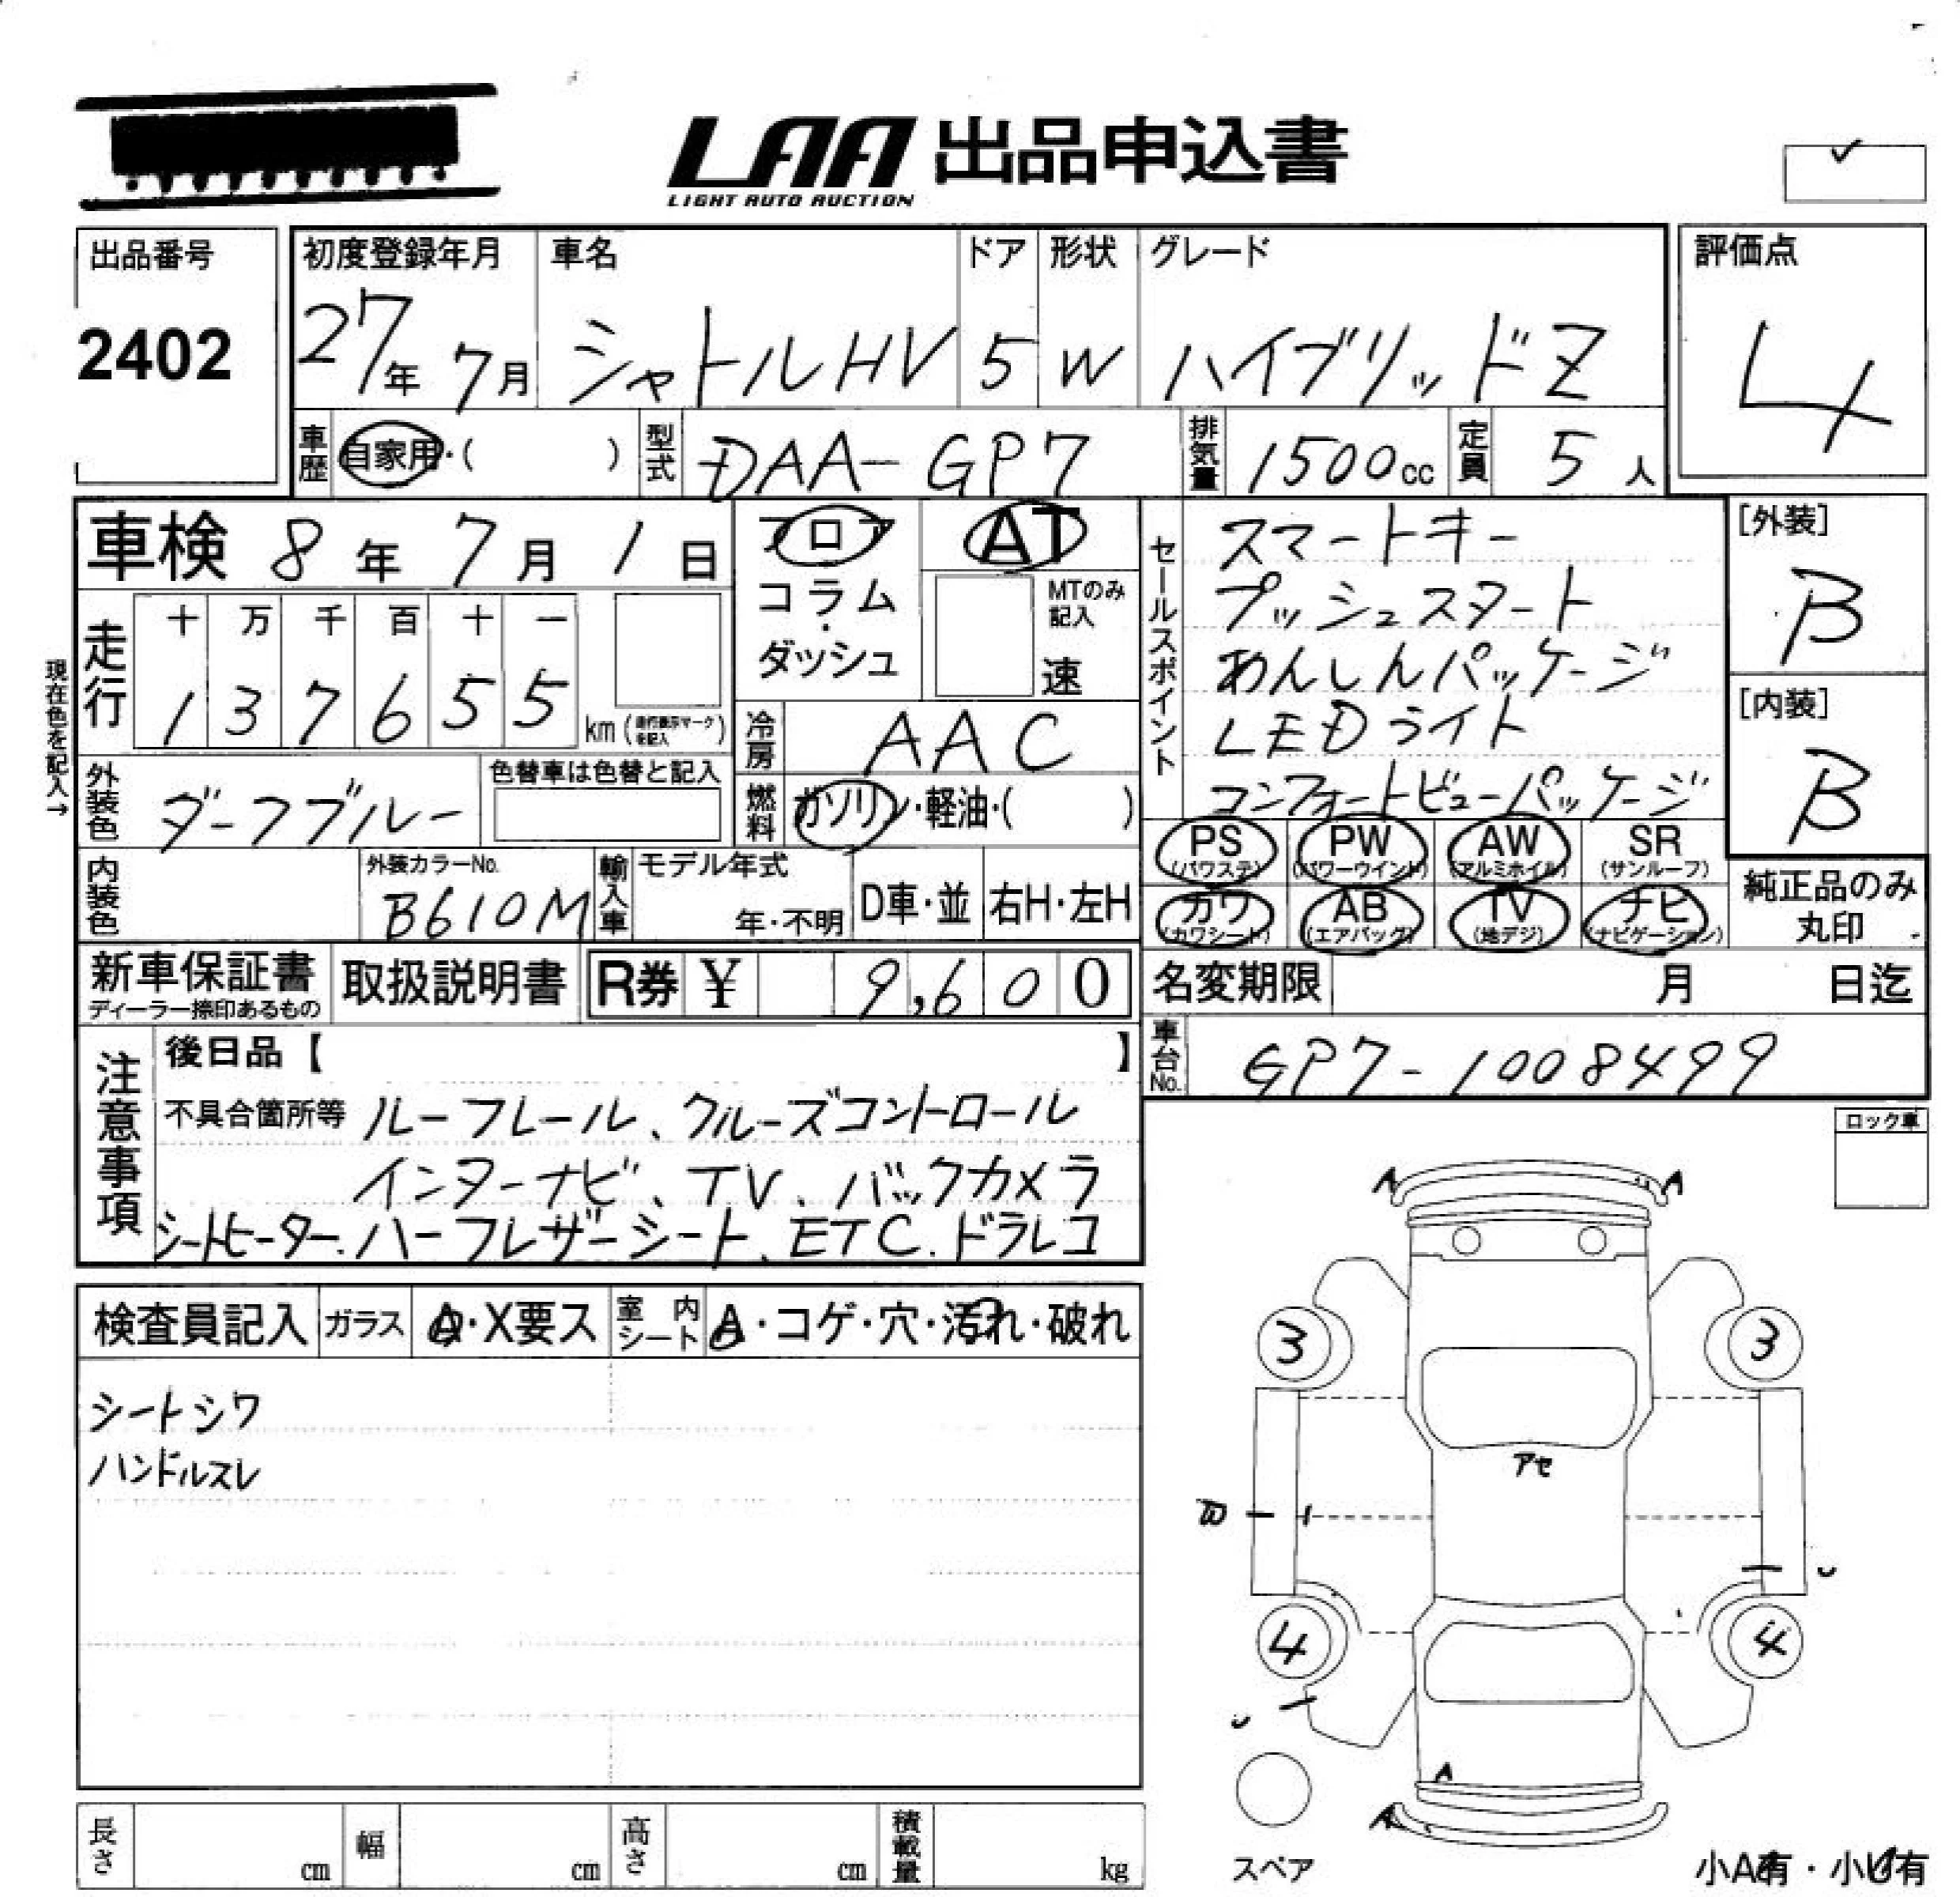 LAA 出品申込書
LIGHT AUTO AUCTION
出品番号
2402
初度登録年月 車名 ドア 形状 グレード
27年 7月 シャトルHV 5 W ハイブリッドZ
評価点
4
車歴 自家用・( ) 型式 DAA-GP7 排気量 1500cc 定員 5人
車検 8年 7月 1日
フロア
コラム
・
ダッシュ
AT
MTのみ記入
速
セールスポイント
スマートキー
プッシュスタート
あんしんパッケージ
LEDライト
コンフォートビューパッケージ
[外装]
B
[内装]
B
現在色を記入→
走行
十 万 千 百 十 一
1 3 7 6 5 5 km (走行表示マークを記入)
冷房 AAC
外装色 ダークブルー
色替車は色替と記入
燃料 ガソリン・軽油・( )
PS (パワステ) PW (パワーウインド) AW (アルミホイル) SR (サンルーフ)
カワ (カワシート) AB (エアバッグ) TV (地デジ) ナビ (ナビゲーション)
純正品のみ
丸印
内装色 外装カラーNo. B610M
輸入車 モデル年式 年・不明 D車・並 右H・左H
新車保証書
ディーラー捺印あるもの
取扱説明書 R券 ¥ 9,600
名変期限 月 日迄
車台No. GP7-1008499
注意事項
後日品【 】
不具合箇所等 ルーフレール、クルーズコントロール
インターナビ、TV、バックカメラ
シートヒーター、ハーフレザーシート、ETC、ドラレコ
ロック車
検査員記入 ガラス A・X要ス 室内シート A・コゲ・穴・汚れ・破れ
シートシワ
ハンドルスレ
A A
3 3
アセ
4 4
A
A
スペア
小A有・小U有
長さ cm 幅 cm 高さ cm 積載量 kg